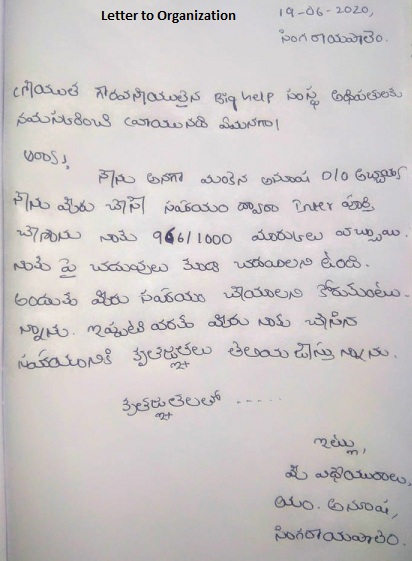 Letter to Organization
19-06-2020,
సింగరాయపాలెం.
గౌరవనీయులైన Big help సంస్థ అధిపతులకు
నమస్కరించి వ్రాయునది ఏమనగా।
అయ్యా,
నేను అనగా మంకెన అనూష D/O అబ్బాయ్య
నేను మీరు చేసే సహాయం ద్వారా inter పూర్తి
చేశాను నాకు 966/1000 మార్కులు వచ్చాయి.
నాకు పై చదువులు కూడా చదవాలని ఉంది.
అందుకు మీరు సహాయం చేయాలని కోరుకుంటు-
న్నాను. ఇప్పటి వరకు మీరు నాకు చేసిన
సహాయానికి కృతజ్ఞతలు తెలియ చేస్తున్నాను.
కృతజ్ఞతలతో .....
ఇట్లు,
మీ విధేయురాలు,
యం. అనూష,
సింగరాయపాలెం.